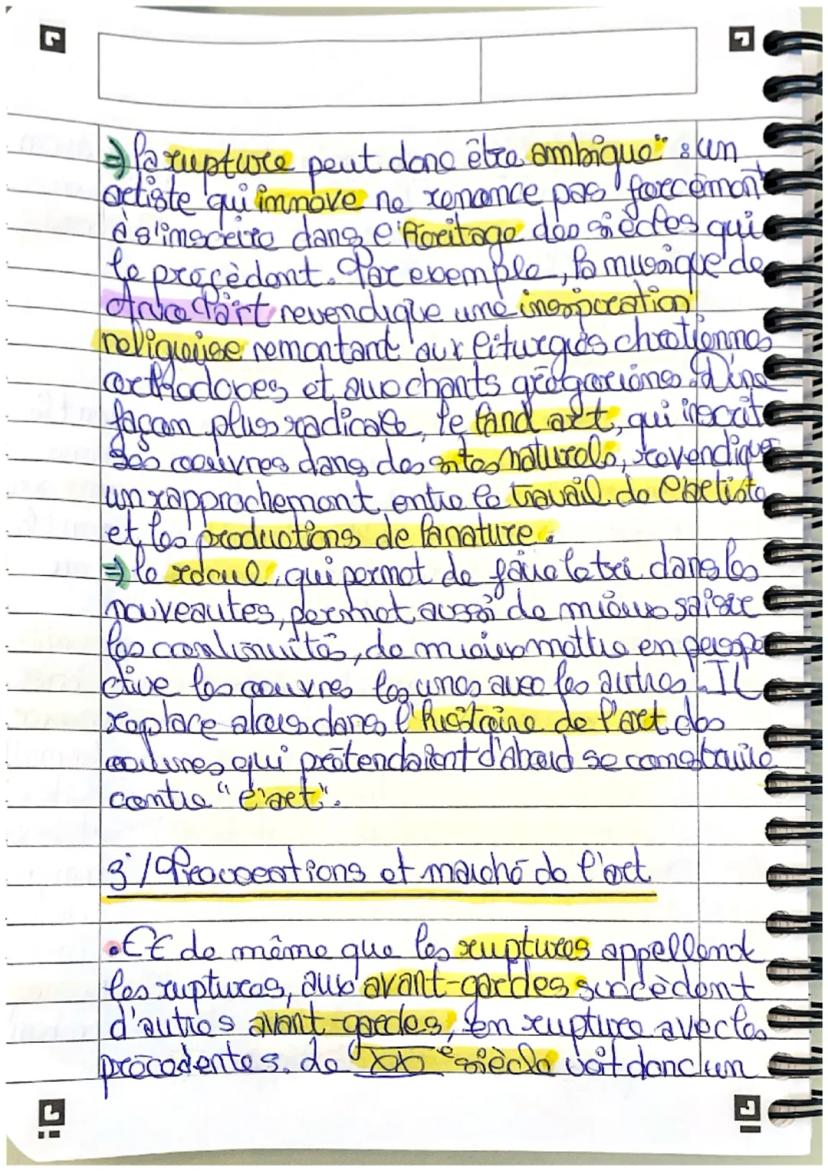 ⇒ la rupture peut donc être "ambigue" : un
artiste qui innove ne renonce pas forcément
à s'inscrire dans l'héritage des siècles qui
le précèdent. Par exemple, la musique de
Arvo Pärt revendique une inespiration
religieuse remontant aux liturgies chrétiennes
orthodoxes et aux chants grégoriens. D'une
façon plus radicale, le land art, qui inscrit
ses oeuvres dans des sites naturels, revendique
un rapprochement entre le travail de l'artiste
et les productions de la nature.
⇒ le recul, qui permet de faire le tri dans les
nouveautes, permet aussi de mieux saisir
les continuités, de mieux mettre en perspe
ctive les oeuvres les unes avec les autres. Il
replace alors dans l'histoire de l'art des
oeuvres qui prétendaient d'abord se construire
contre "l'art".
3°/ Provocations et marché de l'art
• Et de même que les ruptures appellent
les ruptures, aux avant-gardes succèdent
d'autres avant-gardes, en rupture avec les
précédentes. Le XXe siècle voit donc un